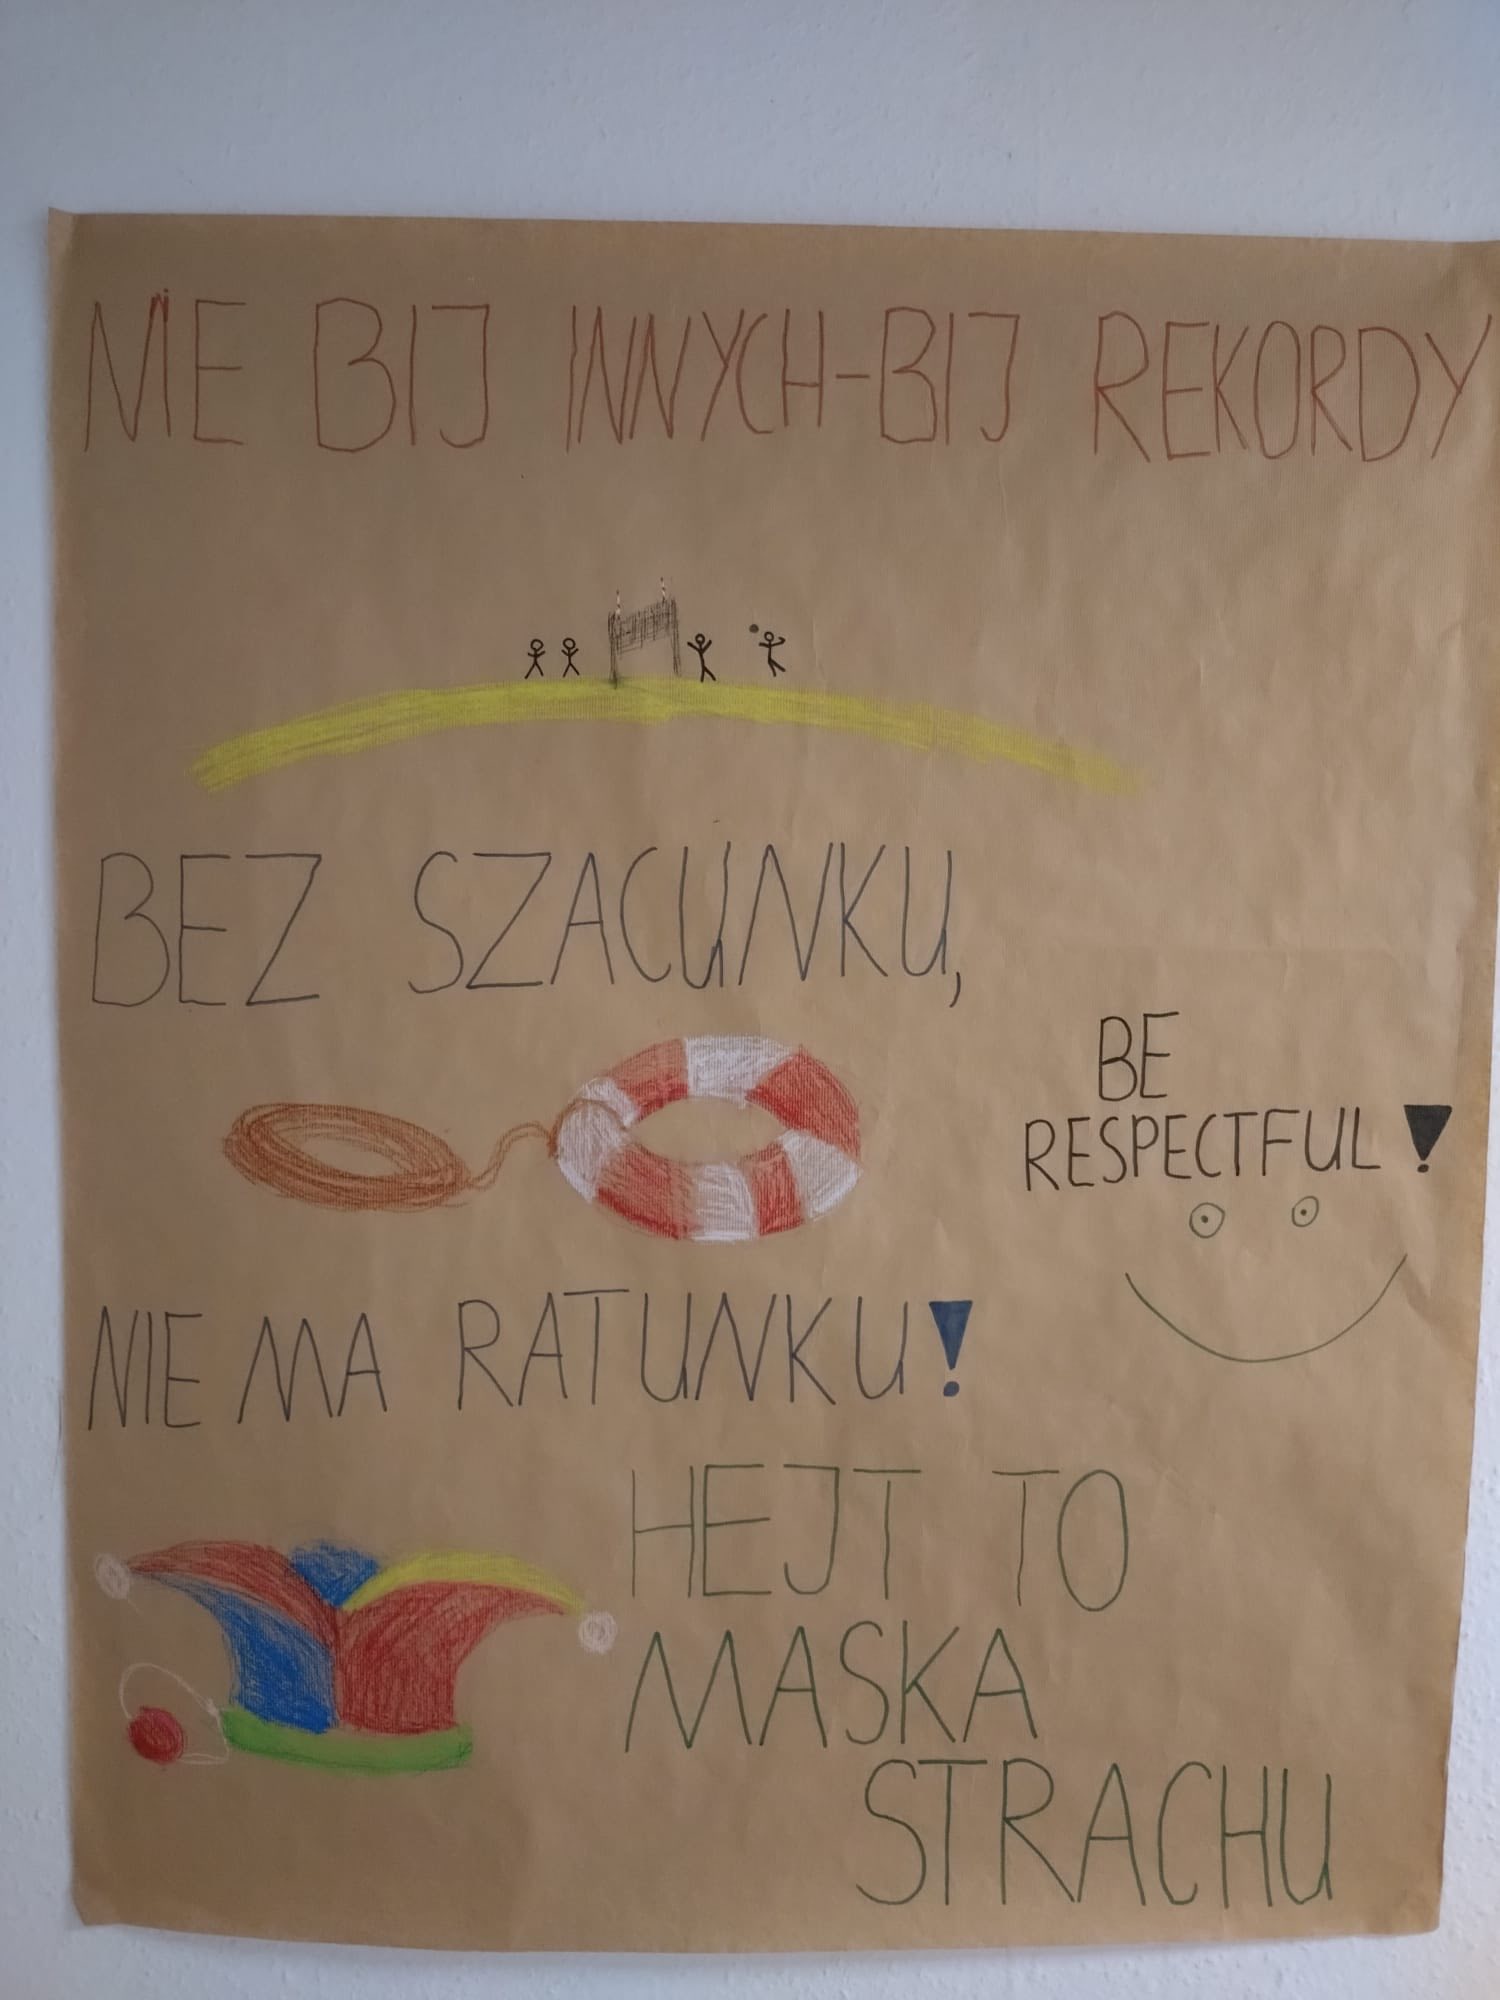 NIE BIJ INNYCH-BIJ REKORDY
BEZ SZACUNKU,
BE
RESPECTFUL!
NIE MA RATUNKU!
HEJT TO
MASKA
STRACHU